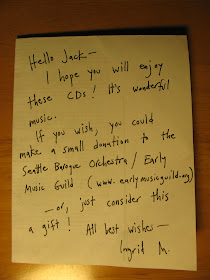 Hello Jack—
I hope you will enjoy
these CDs! It's wonderful
music.
If you wish, you could
make a small donation to the
Seattle Baroque Orchestra / Early
Music Guild (www.earlymusicguild.org)
—or, just consider this
a gift! All best wishes—
Ingrid M.